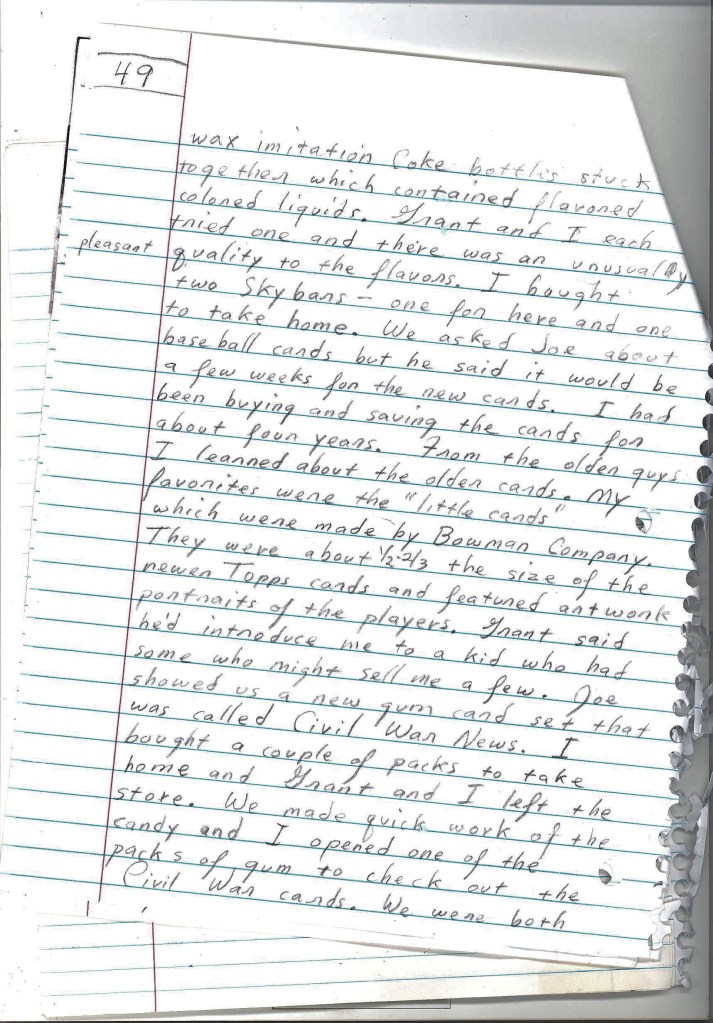 49
wax imitation Coke bottles stuck
together which contained flavored
colored liquids. Grant and I each
tried one and there was an unusually
pleasant quality to the flavors. I bought
two Sky bars - one for here and one
to take home. We asked Joe about
baseball cards but he said it would be
a few weeks for the new cards. I had
been buying and saving the cards for
about four years. From the older guys
I learned about the older cards. My
favorites were the "little cards"
which were made by Bowman Company.
They were about 1/2-2/3 the size of the
newer Topps cards and featured art work
portraits of the players. Grant said
he'd introduce me to a kid who had
some who might sell me a few. Joe
showed us a new gum card set that
was called Civil War News. I
bought a couple of packs to take
home and Grant and I left the
store. We made quick work of the
candy and I opened one of the
packs of gum to check out the
Civil War cards. We were both